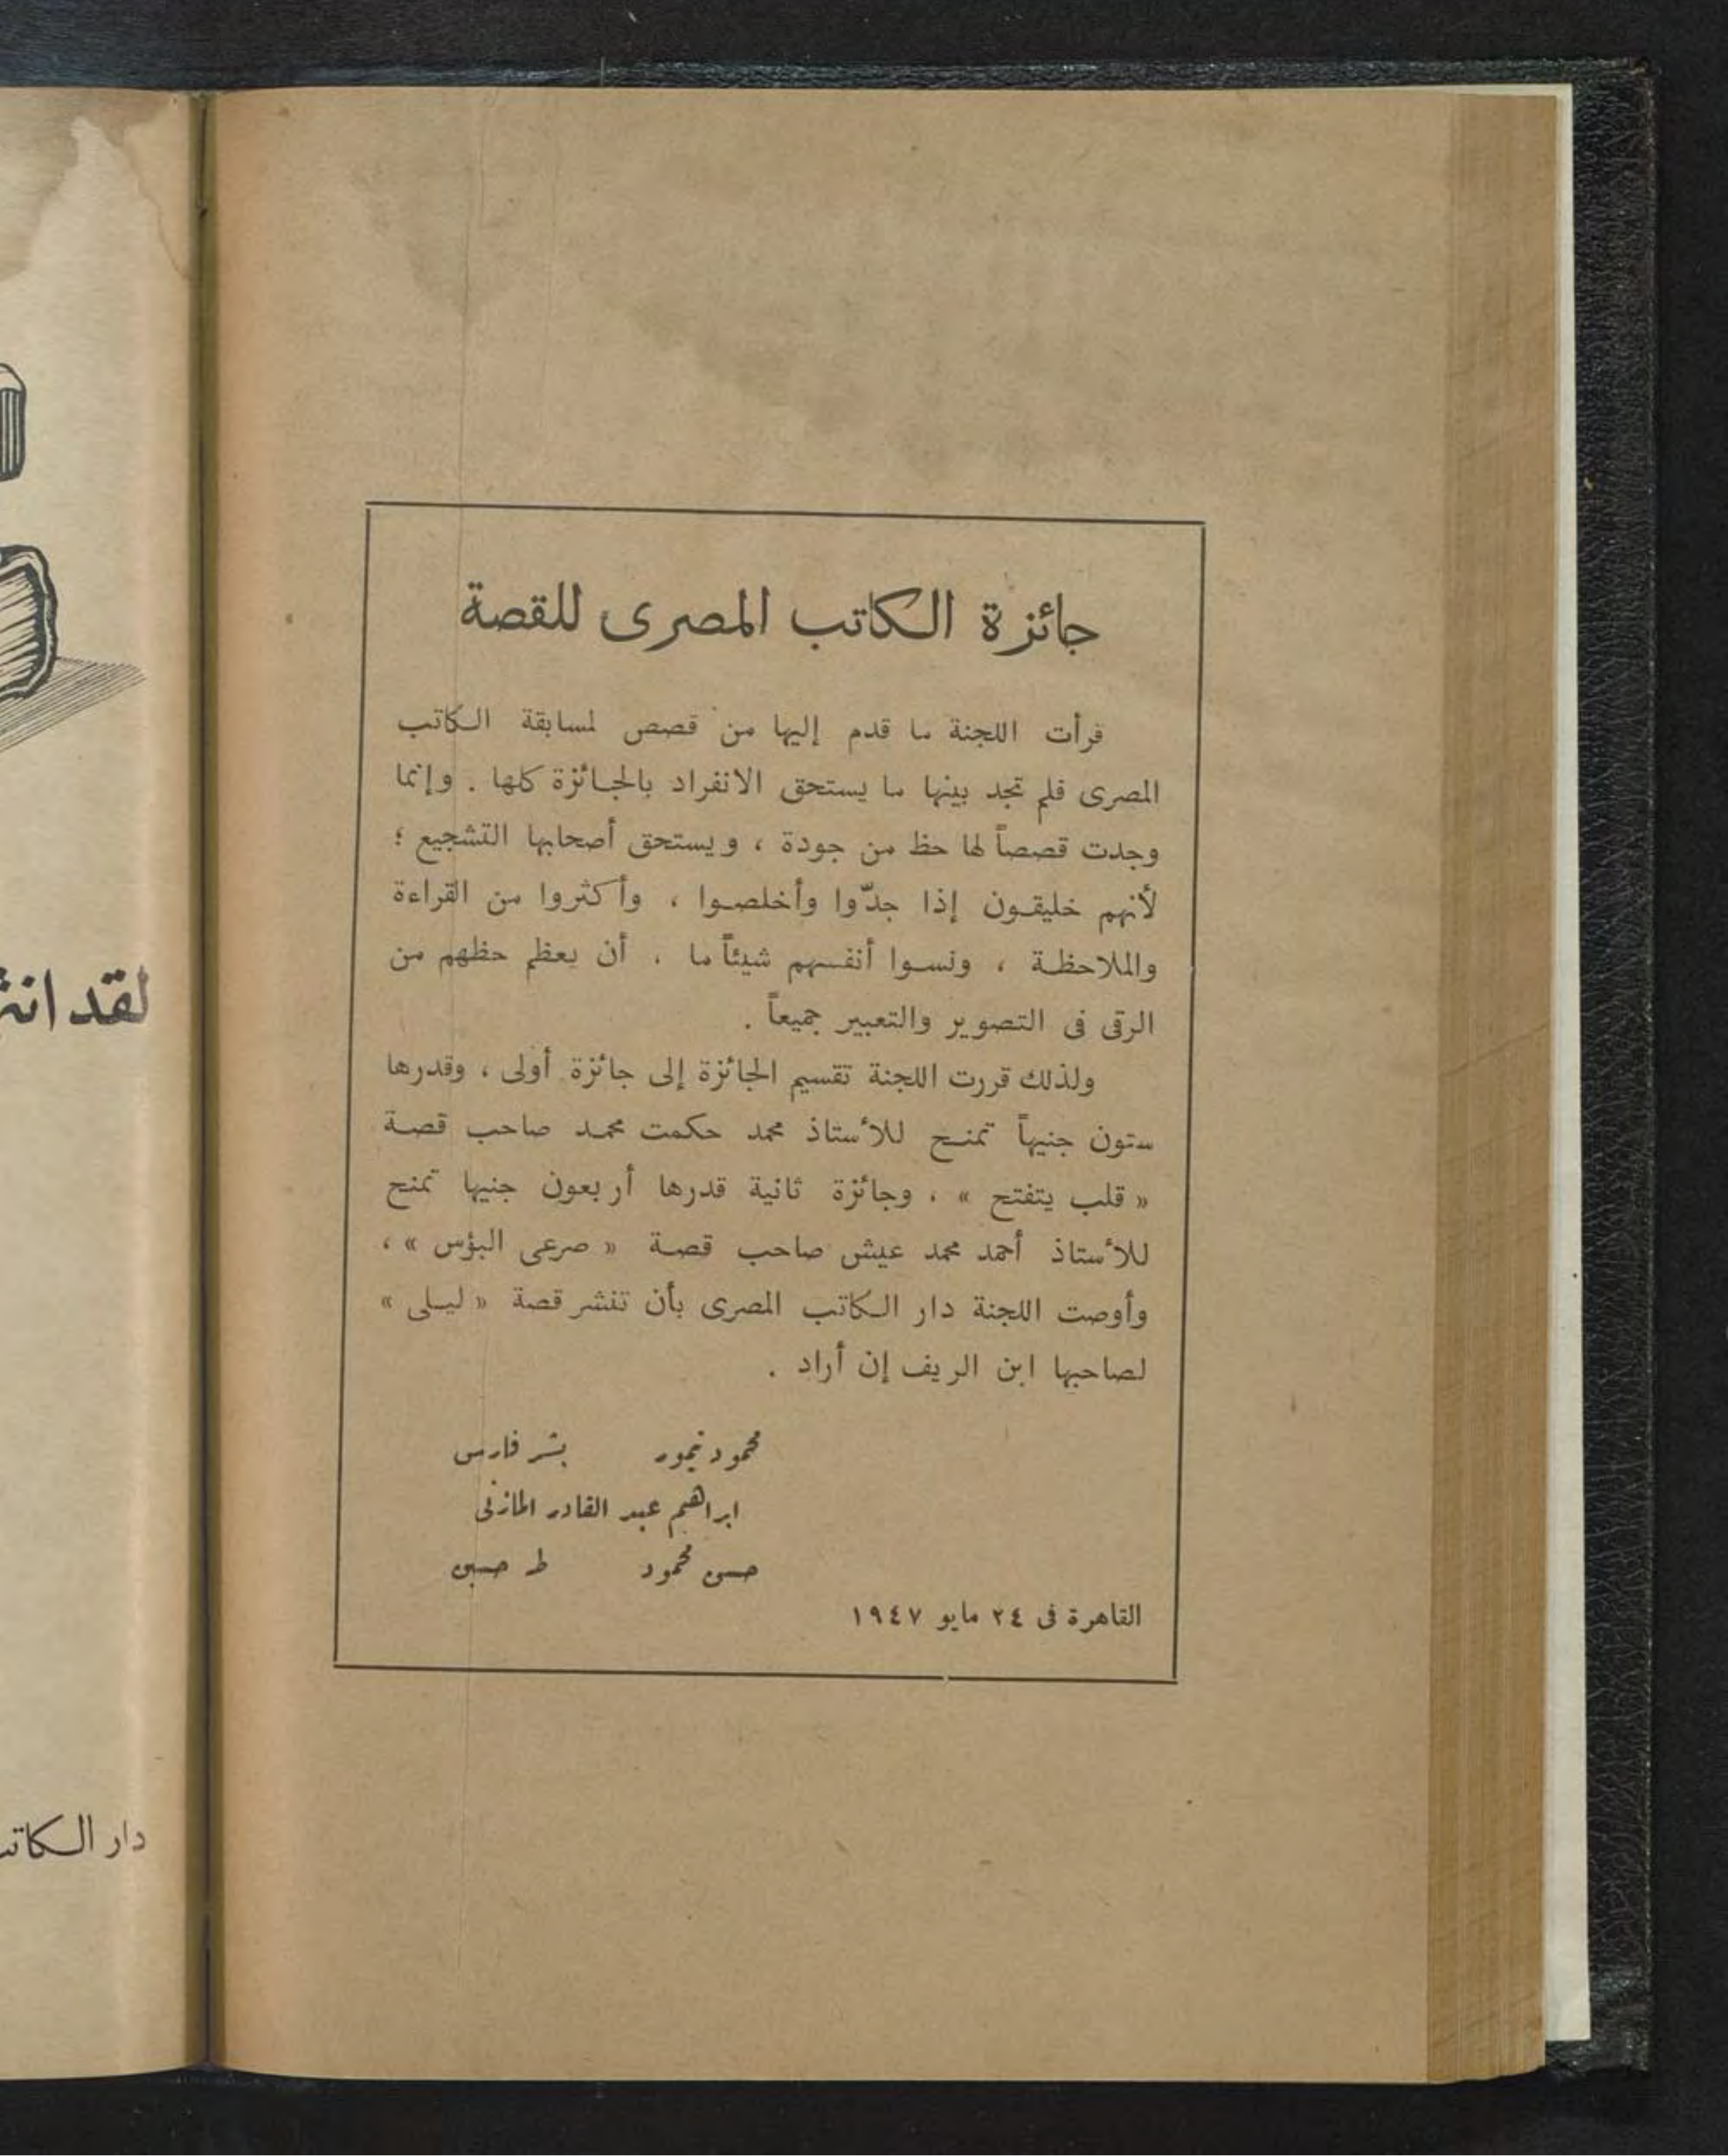 جائزة الكاتب المصرى للقصة
قرأت اللجنة ما قدم إليها من قصص لمسابقة الكاتب
المصرى فلم تجد بينها ما يستحق الانفراد بالجائزة كلها . وإنما
وجدت قصصاً لها حظ من جودة ، ويستحق أصحابها التشجيع ؛
لأنهم خليقون إذا جدّوا وأخلصوا ، وأكثروا من القراءة
والملاحظة ، ونسوا أنفسهم شيئاً ما ، أن يعظم حظهم من
الرقى فى التصوير والتعبير جميعاً .
ولذلك قررت اللجنة تقسيم الجائزة إلى جائزة أولى ، وقدرها
ستون جنيهاً تمنح للأستاذ محمد حكمت محمد صاحب قصة
« قلب يتفتح » ، وجائزة ثانية قدرها أربعون جنيها تمنح
للأستاذ أحمد محمد عيش صاحب قصة « صرعى البؤس » ،
وأوصت اللجنة دار الكاتب المصرى بأن تنشر قصة « ليلى »
لصاحبها ابن الريف إن أراد .
محمود تيمور بشر فارس
ابراهيم عبد القادر المازنى
حسن محمود طه حسين
القاهرة فى ٢٤ مايو ١٩٤٧
لقد
دار